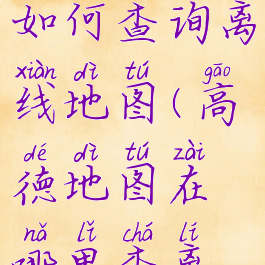 如何查询离
xiàn dì tú gāo
线地图(高
dé dì tú zài
德地图在
nǎ lǐ chá lí
哪里查离